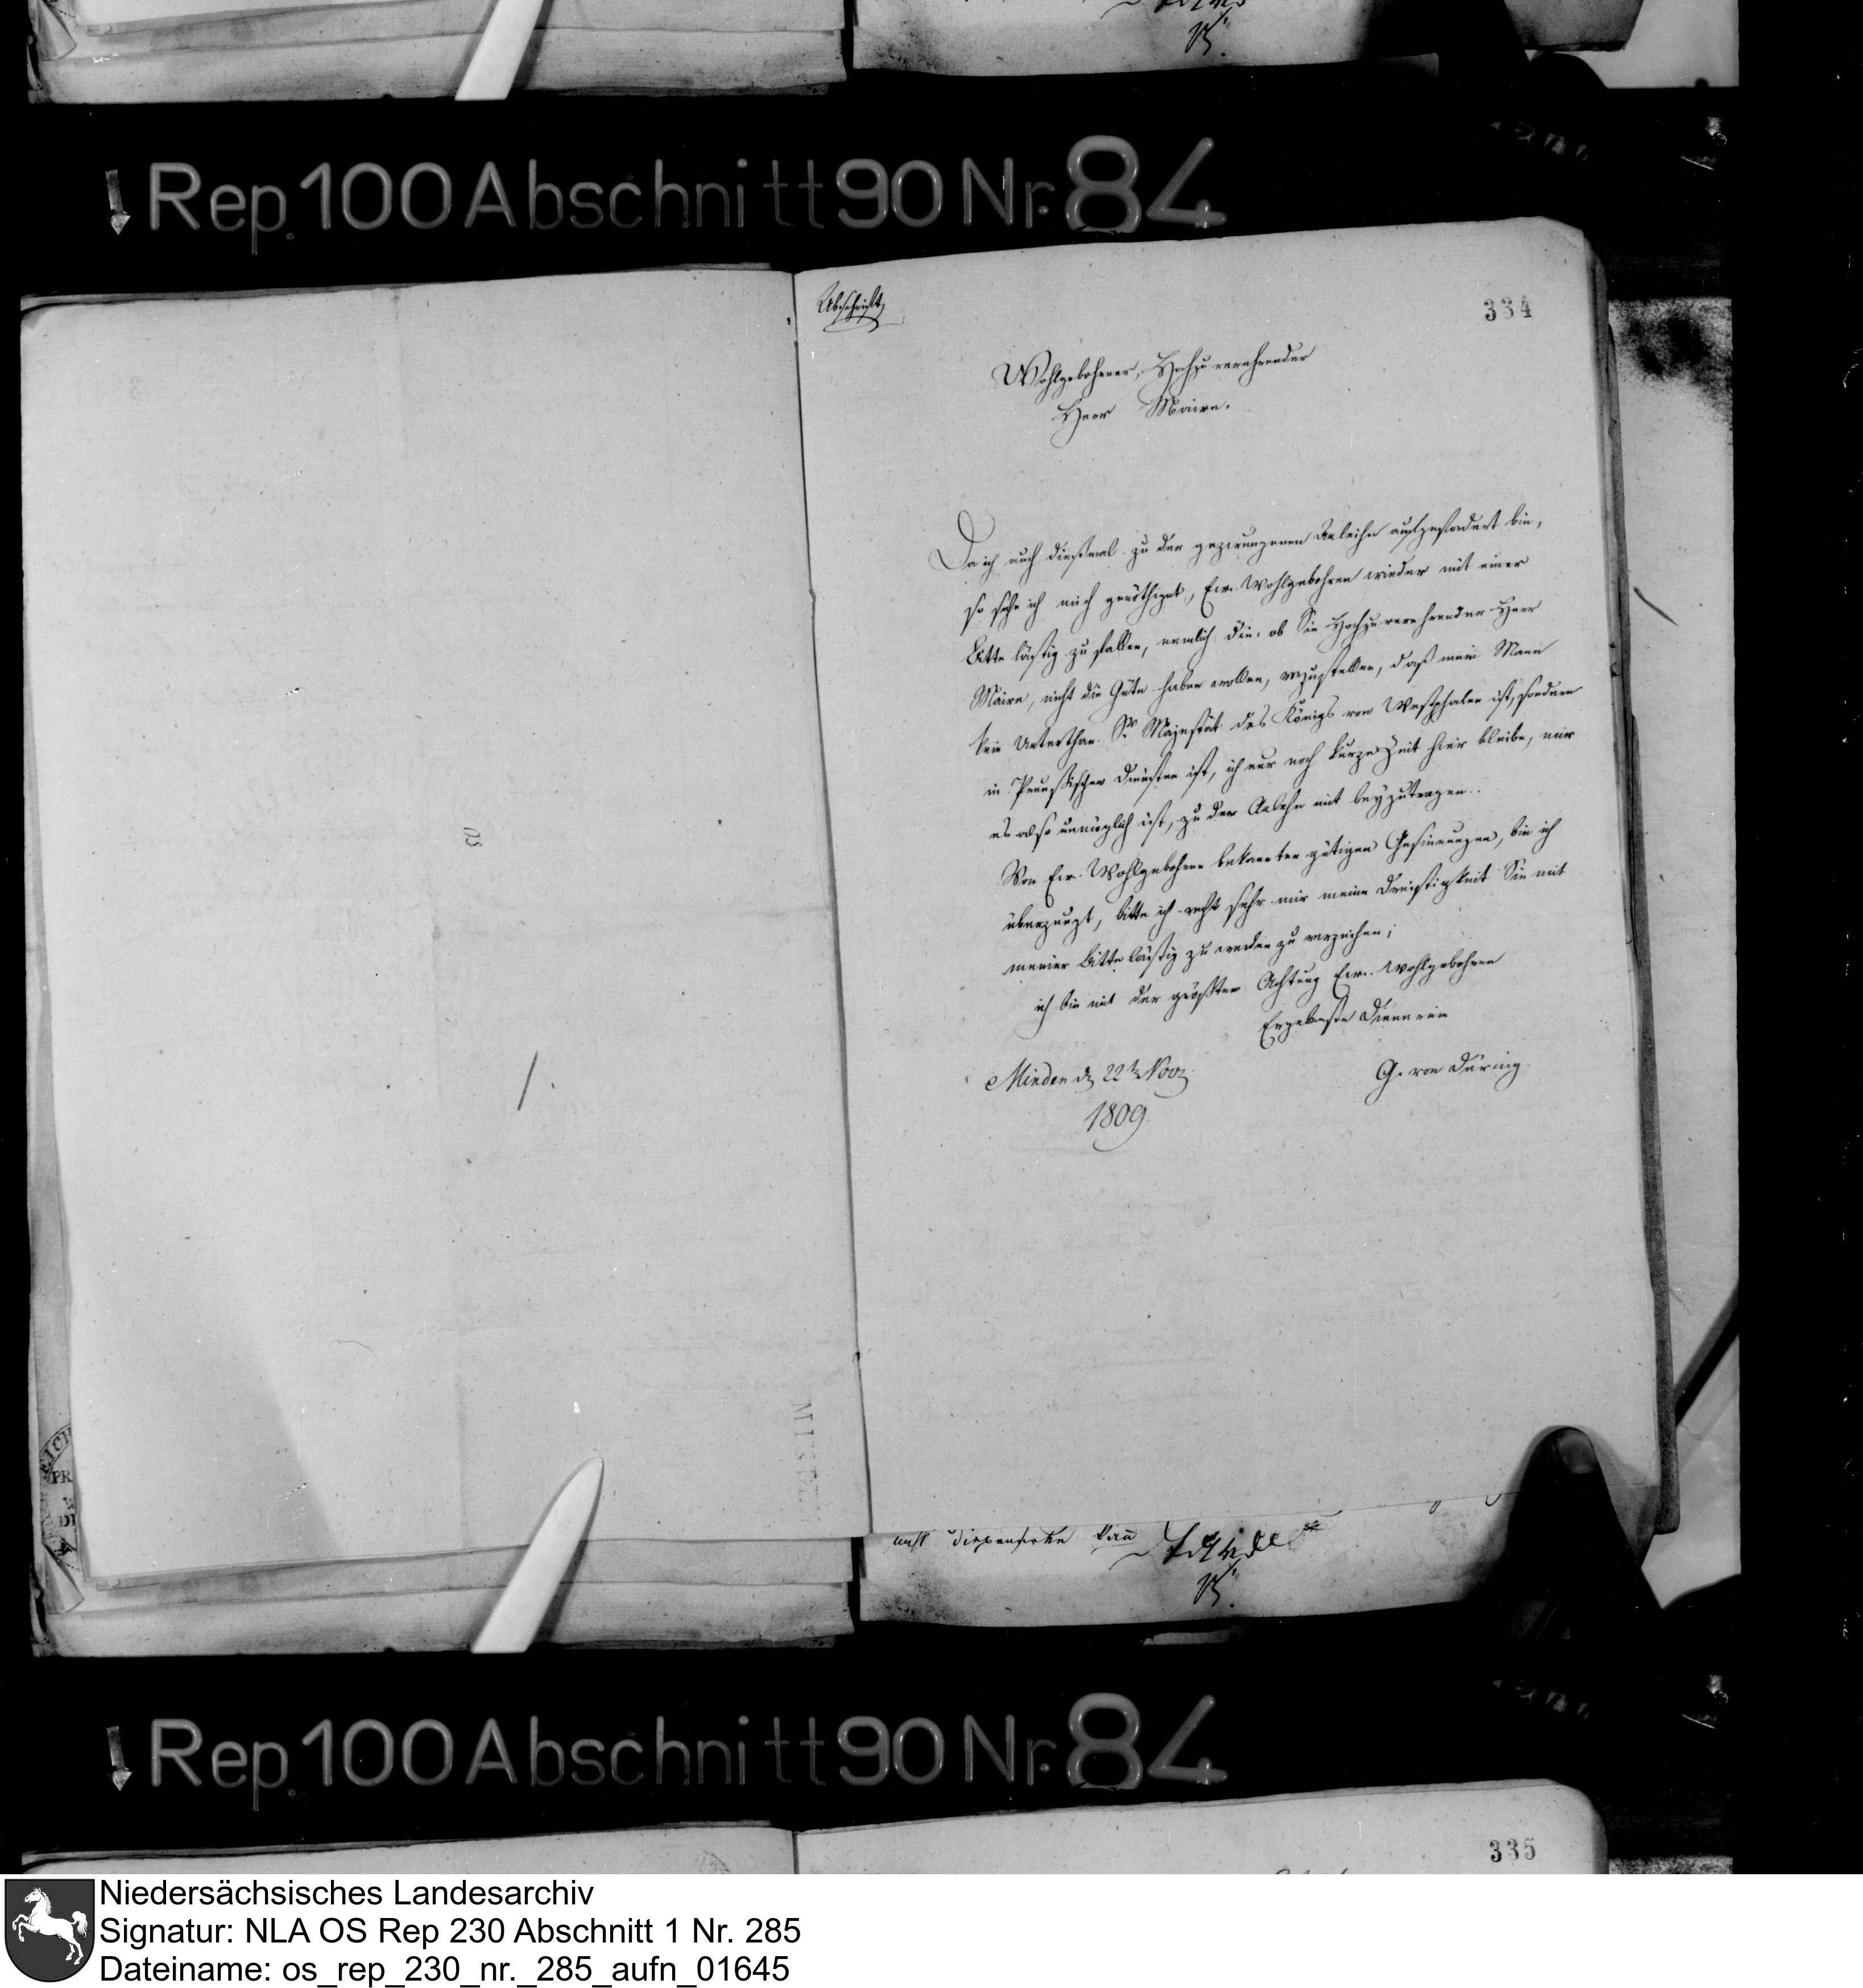 Rep. 100 Abschnitt 90 Nr. 84
Abschrift
334
Wohlgebohrner, Hochzuverehrender
Herr Maire.
Da ich auch dießmal zu der gezwungenen Anleihe aufgefordert bin,
so sehe ich mich genöthiget, Ew. Wohlgebohren wieder mit einer
Bitte lästig zu fallen, nemlich die: ob Sie Hochzuverehrender Herr
Maire, nicht die Güte haben wollen, vorzustellen, daß mein Mann
kein Unterthan Sr. Majestät des Königs von Westphalen ist, sondern
in Preussischen Diensten ist, ich nur noch kurze Zeit hier bleibe, mir
es also unmöglich ist, zu der Anlehn mit beyzutragen.
Von Ew. Wohlgebohren bekannten gütigen Gesinnungen, bin ich
überzeugt, bitte ich recht sehr mir meine Dreistigkeit Sie mit
meiner Bitte lästig zu werden zu verzeihen;
ich bin mit der größten Achtung Ew. Wohlgebohren
Ergebenste Dienerin
G. von Düring.
Minden d. 22t Nov.
1809
MUSEE
dispensirten kan
Rep. 100 Abschnitt 90 Nr. 84
335
Niedersächsisches Landesarchiv
Signatur: NLA OS Rep 230 Abschnitt 1 Nr. 285
Dateiname: os_rep_230_nr._285_aufn_01645